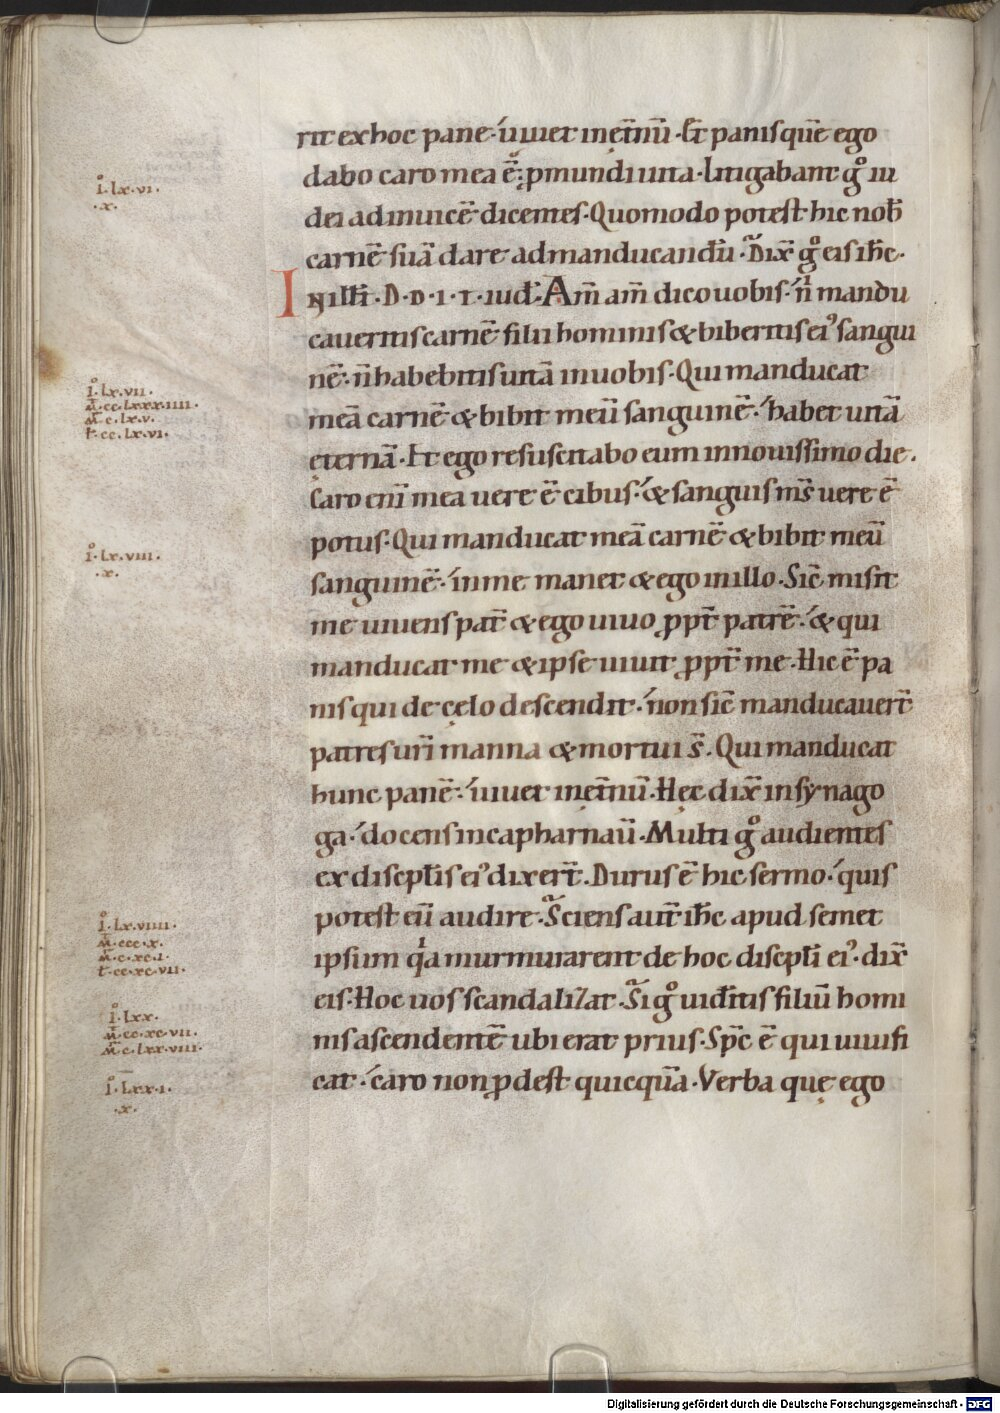 rit ex hoc pane· uiuet inęt̄nū· Et panis quē ego
dabo caro mea ē· ꝓ mundi uita· Litigabant gͦ iu
dei adinuicē dicentes· Quomodo potest hic nob̄
carnē suā dare admanducandū· Dix̄ gͦ eis ih̄c·
In illī·D·D·I·T·iud̄· Am̄ am̄ dico uobis· n̄ mandu
caueritis carnē filii hominis & biberitis ei᾽ sangui
nē· n̄ habebitis uitā inuobis· Qui manducat
meā carnē & bibit meū sanguinē· habet uitā
ęternā· Et ego resuscitabo eum innouissimo die·
Caro enī mea uere ē cibus· & sanguis ms̄ uere ē
potus· Qui manducat meā carnē & bibit meū
sanguinē· inme manet & ego inillo· Sic̄ misit
me uiuens pat̄ & ego uiuo ꝓpt̄ patrē· & qui
manducat me & ipse uiuit ꝓpt̄ me· Hic ē pa
nis qui de cęlo descendit· non sic̄ manducauer̄t
patres ur̄i manna & mortui s̄· Qui manducat
hunc panē· uiuet inęt̄nū· Hęc dix̄ insynago
ga· docens incapharnaū· Multi gͦ audientes
ex discipl̄is ei᾽ dixer̄t· Durus ē hic sermo· quis
potest eū audire· Sciens aut̄ ih̄c apud semet
ipsum qͥa murmurarent de hoc discipl̄i ei᾽· dix̄
eis· Hoc uos scandalizat· Si gͦ uid̄itis filiū homi
nis ascendentē ubi erat prius· Sp̄c ē qui uiuifi
cat· caro non ꝓdest quicquā· Verba quę ego
I·lx·vi·
·x·
I·lx·vii·
M·cc·lxxx·iiii·
M·c·lx·v·
L·cc·lx·vi·
I·lx·viii·
·x·
I·lx·viiii·
M·ccc·x·
M·c·xc·i·
L·cc·xc·vii·
I·lxx·
M·cc·xc·vii·
M·c·lxx·viii·
I·lxx·i·
·x·
Digitalisierung gefördert durch die Deutsche Forschungsgemeinschaft - DFG